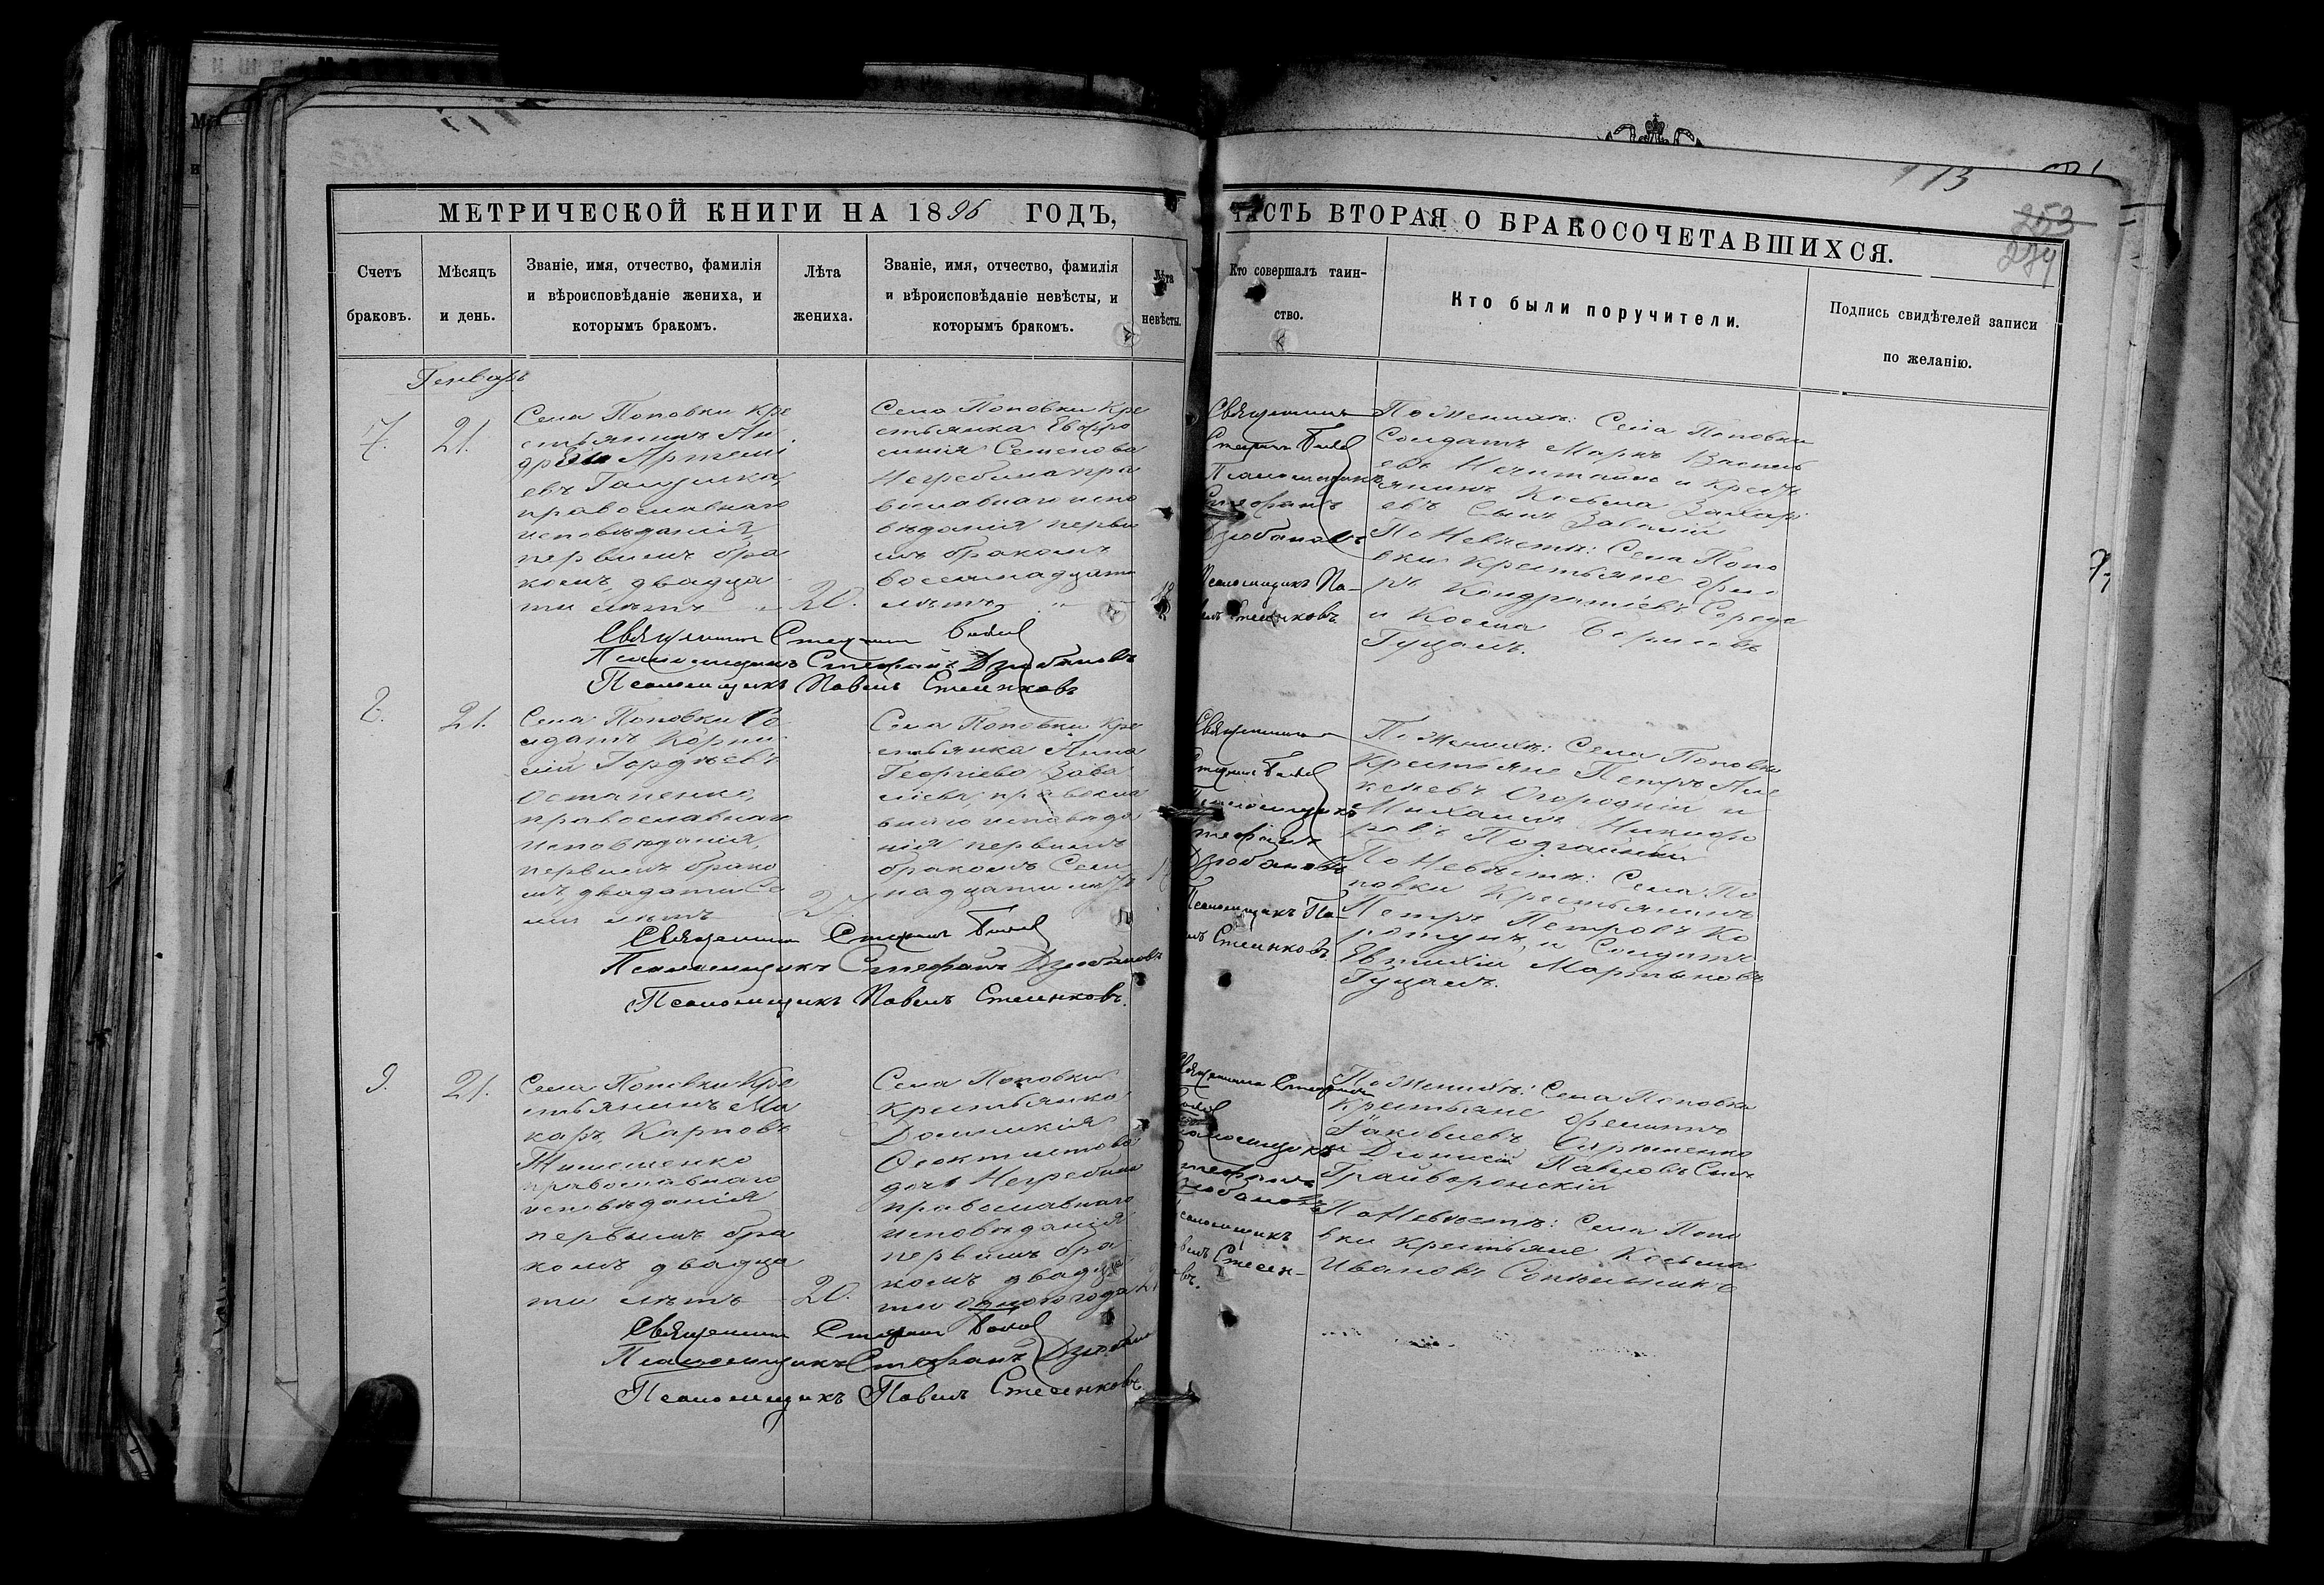 113
253
274
МЕТРИЧЕСКОЙ КНИГИ НА 1896 ГОДЪ,
ЧАСТЬ ВТОРАЯ О БРАКОСОЧЕТАВШИХСЯ.
Счетъ браковъ.
Мѣсяцъ и день.
Званіе, имя, отчество, фамилія
и вѣроисповѣданіе жениха, и
которымъ бракомъ.
Лѣта
жениха.
Званіе, имя, отчество, фамилія
и вѣроисповѣданіе невѣсты, и
которымъ бракомъ.
Лѣта
невѣсты.
Кто совершалъ таин-
ство.
Кто были поручители.
Подпись свидѣтелей записи
по желанію.
Генварь
7.
21.
Села Поповки кре
стьянинъ Ан
дрей Артемі
евъ
православнаго
исповѣданія,
первымъ бра
комъ, двадца
ти лѣтъ
20.
Села Поповки кре
стьянка Евфро
синія Семенова
Негребина пра
вославнаго испо
вѣданія первы
мъ бракомъ
восемнадцати
лѣтъ
18
Священникъ
Стефанъ
Псаломщикъ
Стефанъ
Дзюбановъ
Псаломщикъ Па-
велъ
По Женихѣ: Села Поповки
Солдатъ Маркъ Василь
евъ и крестья
янинъ Косьма Захарі
евъ Сынъ Завалій
По Невѣстѣ: Села Попо
вки Крестьяне
ръ Кондратіевъ Середа
и Косма
Гуцалъ.
Священникъ Стефанъ
Псаломщикъ Стефанъ Дзюбановъ
Псаломщикъ Павелъ
8.
21.
Села Поповки Со
лдатъ Корни
лій Гордѣевъ
Остапенко,
православнаго
исповѣданія,
первымъ брако
мъ, двадцати Се
ми лѣтъ
27
Села Поповки кре
стьянка Анна
Георгіева Зава
ліева, правосла
внаго исповѣда
нія первымъ
бракомъ Семь
надцати лѣтъ
Священникъ
Стефанъ
Псаломщикъ
Стефанъ
Дзюбановъ
Псаломщикъ Па-
велъ
По Женихѣ: Села Поповки
Крестьяне Петръ Але
ксѣевъ Огородній и
Михаилъ Никифо
ровъ
По Невѣстѣ: Села По
повки Крестьянинъ
Петръ Петровъ Ко
ротунъ, и Солдатъ
Евтихій Мартыновъ
Гуцалъ.
Священникъ Стефанъ
Псаломщикъ Стефанъ Дзюбановъ
Псаломщикъ Павелъ
9.
21.
Села Поповки Кре
стьянинъ Ма
каръ Карповъ
Тимошенко
православнаго
исповѣданія
первымъ бра
комъ двадца
ти лѣтъ
20.
Села Поповки
Крестьянка
Домникія
Феоктистова
дочь Негребина
православнаго
исповѣданія
первымъ бра
комъ двадца
ти одного года
Священникъ Стефанъ
Псаломщикъ
Стефанъ
Дзюбановъ
Псаломщикъ
По Женихѣ: Села Поповки
Крестьяне Филиппъ
Іаковлевъ
и Діонисій Павловъ Сынъ
Грайворонскій
По Невѣстѣ: Села Попо
вки Крестьяне Косьма
Ивановъ Сопѣльникъ
Священникъ Стефанъ
Псаломщикъ Стефанъ Дзюбановъ
Псаломщикъ Павелъ